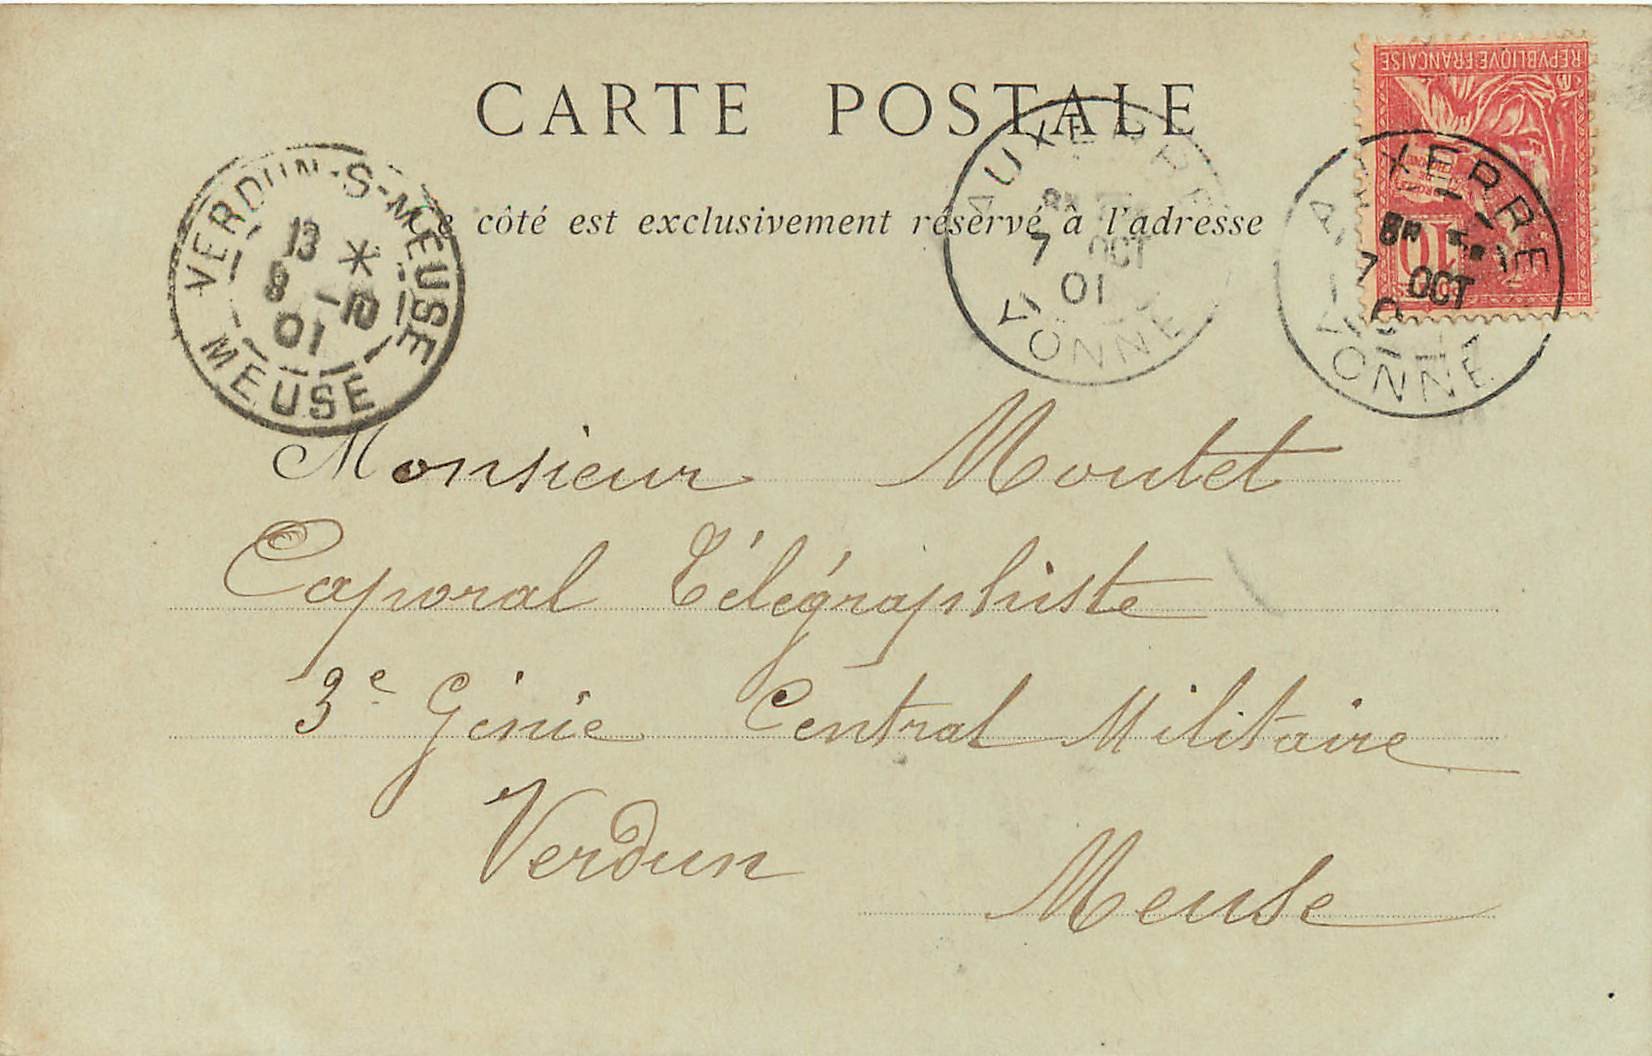 CARTE POSTALE
Ce côté est exclusivement réservé à l'adresse
REPUBLIQUE FRANÇAISE
10
VERDUN-S-MEUSE
13 *
9 -10
01
MEUSE
AUXERRE
7 OCT
01
YONNE
AUXERRE
7 OCT
YONNE
Monsieur Moutet
Caporal Télégraphiste
3e Génie Central Militaire
Verdun
Meuse